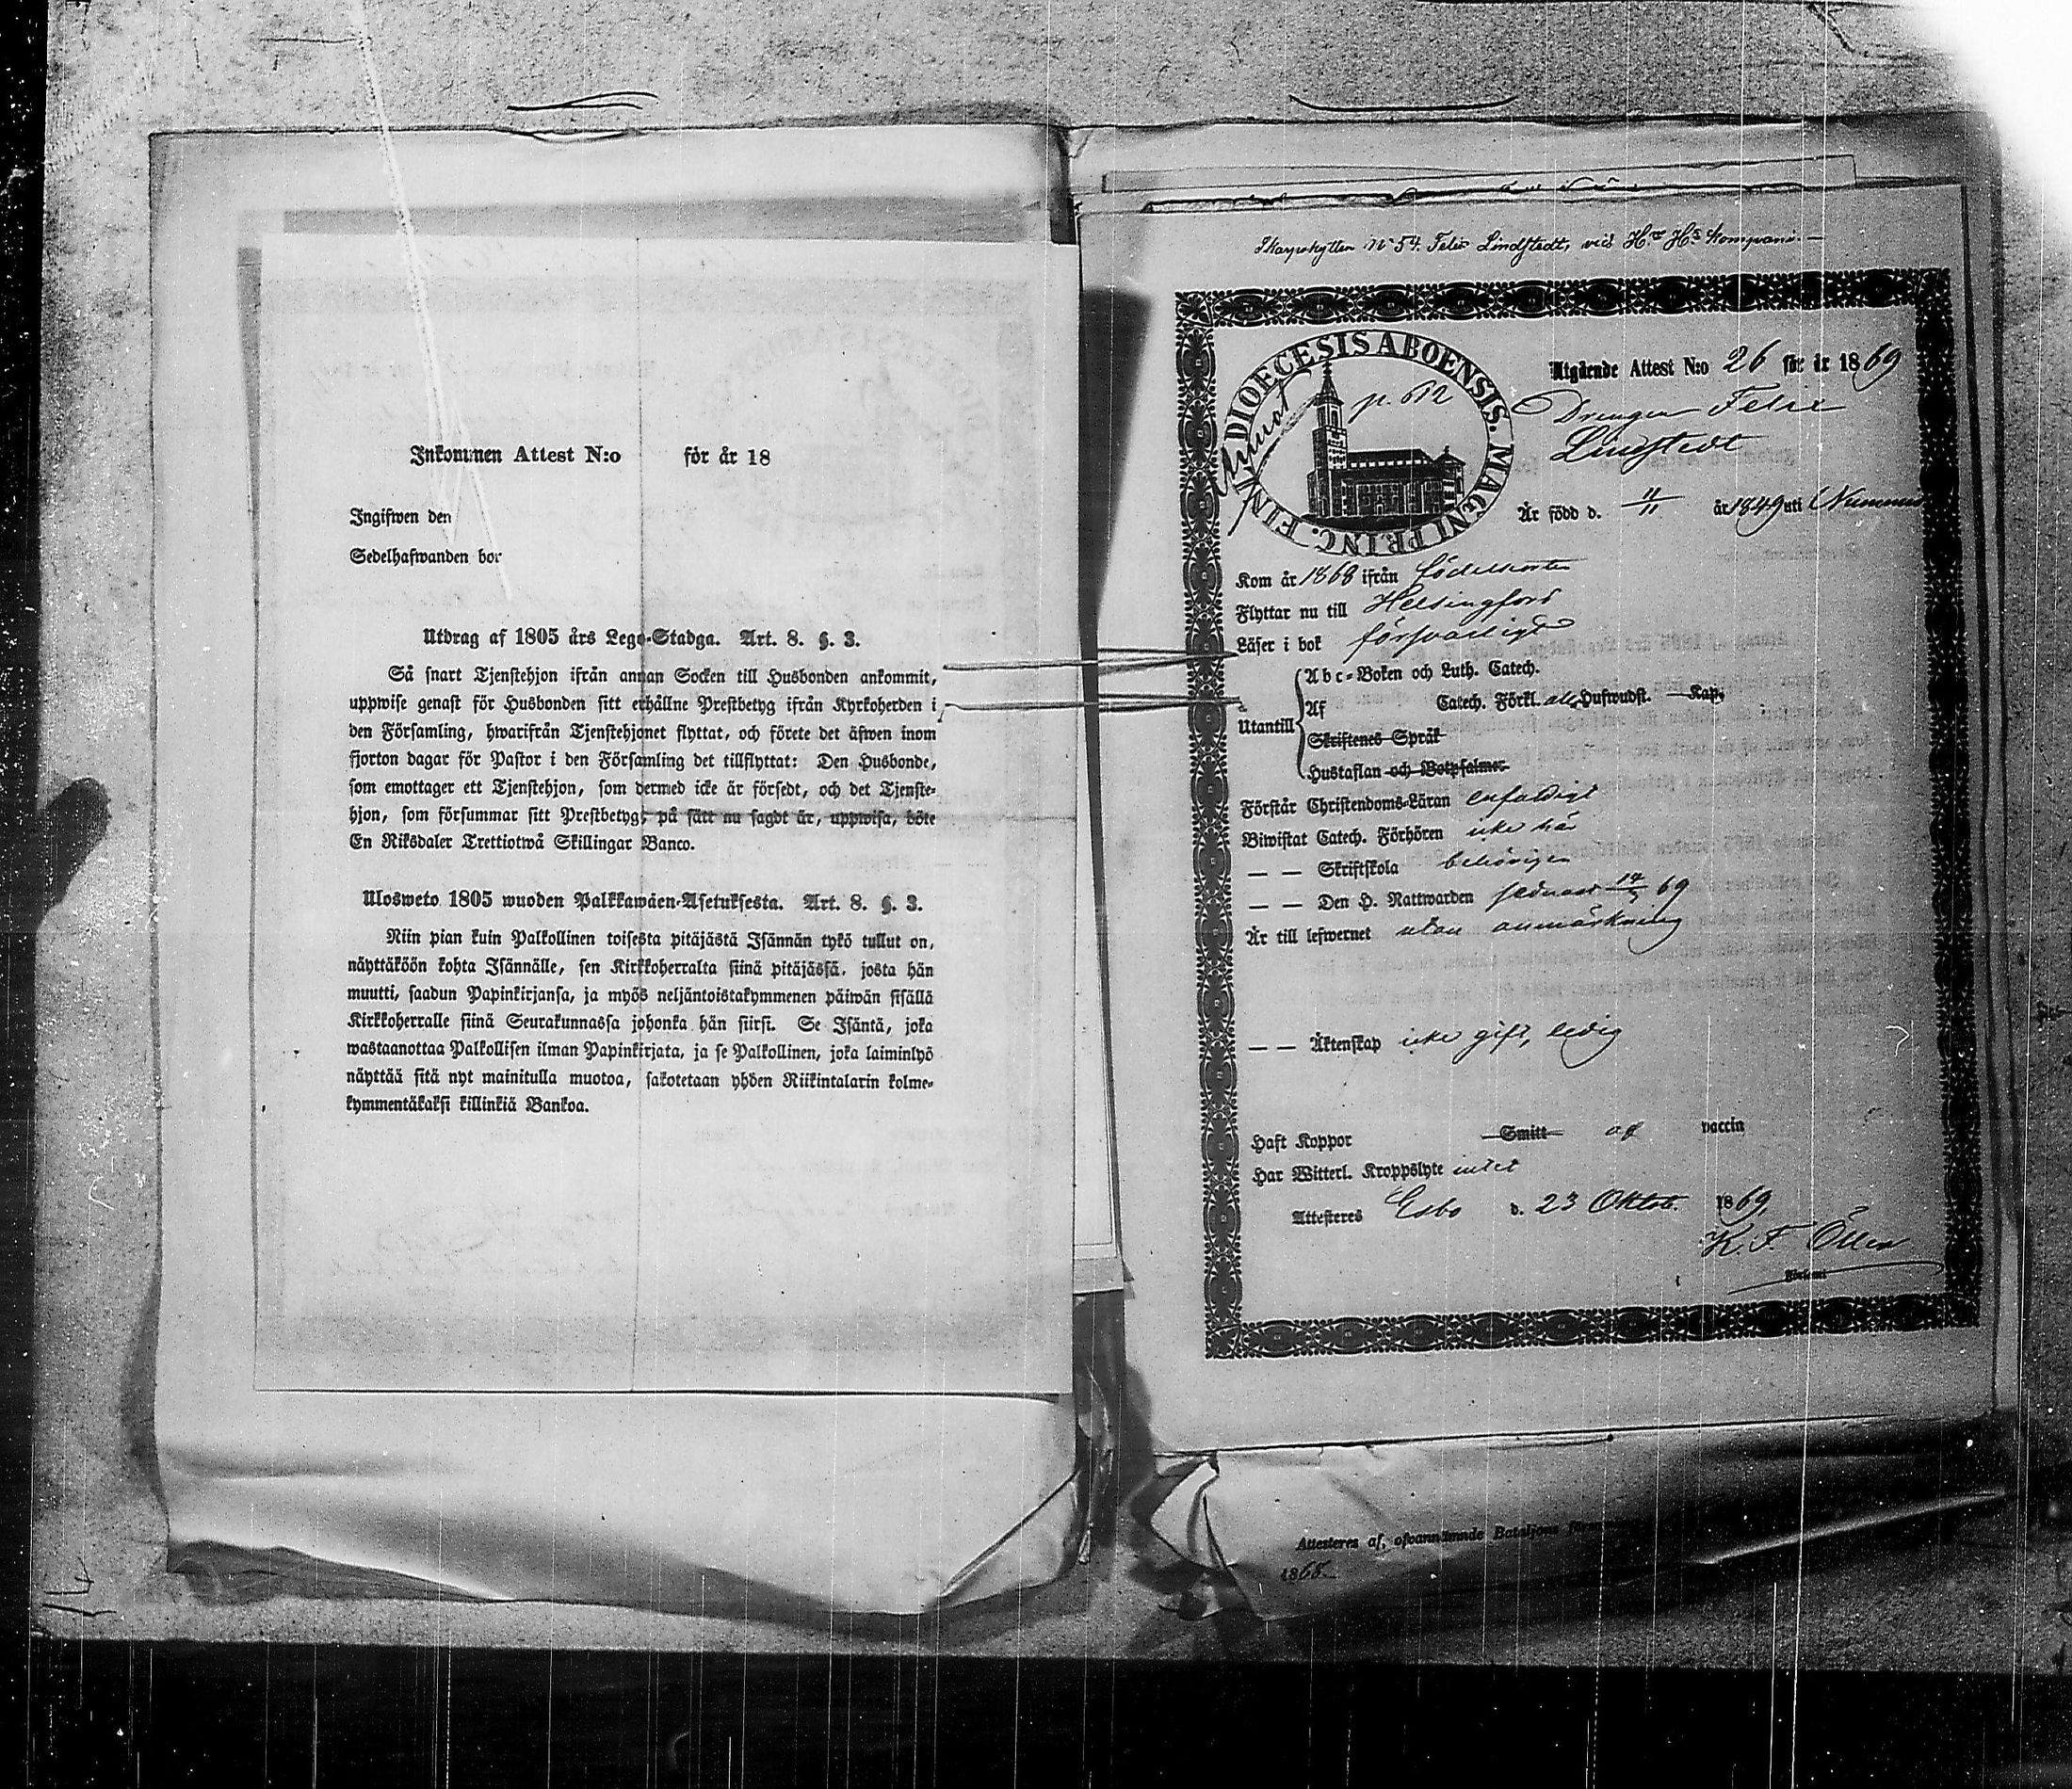 Inkommen Attest N:o för år 18
Ingifwen den
Sedelhafwanden bor
Utdrag af 1805 års Lego-Stadga. Art. 8. §. 3.
Så snart Tjenstehjon ifrån annan Socken till Husbonden ankommit,
uppwise genast för Husbonden sitt erhållne Prestbetyg ifrån Kyrkoherden i
den Församling, hwarifrån Tjenstehjonet flyttat, och förete det äfwen inom
fjorton dagar för Pastor i den Församling det tillflyttat: Den Husbonde,
som emottager ett Tjenstehjon, som dermed icke är försedt, och det Tjenste-
hjon, som försummar sitt Prestbetyg, på sätt nu sagdt är, uppwisa, böte
En Riksdaler Trettiotwå Skillingar Banco.
Ulosweto 1805 wuoden Palkkawäen-Asetuksesta. Art. 8. §. 3.
Niin pian kuin Palkollinen toisesta pitäjästä Isännän tykö tullut on,
näyttäköön kohta Isännälle, sen Kirkkoherralta siinä pitäjässä, josta hän
muutti, saadun Papinkirjansa, ja myös neljäntoistakymmenen päiwän sisällä
Kirkkoherralle siinä Seurakunnassa johonka hän siirsi. Se Isäntä, joka
wastaanottaa Palkollisen ilman Papinkirjata, ja se Palkollinen, joka laiminlyö
näyttää sitä nyt mainitulla muotoa, sakotetaan yhden Riikintalarin kolme-
kymmentäkaksi killinkiä Bankoa.
Skarpskytten N:o 54. Felix Lindstedt, vid H:r H:s Kompani.—
DIOECESIS ABOENSIS. MAGNI PRINC. FINL.
p. 612
Utgående Attest N:o 26 för år 1869
Drengen Felix
Lindstedt
Är född d. 11/11 år 1849 uti Nummis
Kom år 1868 ifrån födelseorten
Flyttar nu till Helsingfors
Läser i bok försvarligt
Abc-Boken och Luth. Catech.
Utantill Af Catech. Förkl. alla Hufwudst. Kap.
Skriftenes Språk
Hustaflan och Botpsalmer
Förstår Christendoms-Läran enfaldigt
Biwistat Catech. Förhören icke här
— — Skriftskola behörigen
— — Den H. Nattwarden sednast 14/ 69
Är till lefwernet utan anmärkning
— — Äktenskap icke gift, ledig
Haft Koppor Smitt af vaccin
Har Witterl. Kroppslyte intet
Attesteres Esbo d. 23 Oktob. 1869.
K. F.
Attesteres af, ofvannämnde Bataljons
1868.